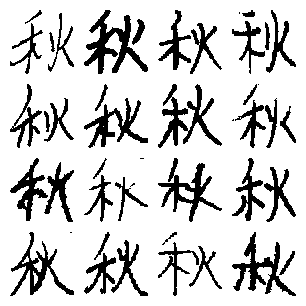 秋秋秋秋
秋秋秋秋
秋秋秋秋
秋秋秋秋